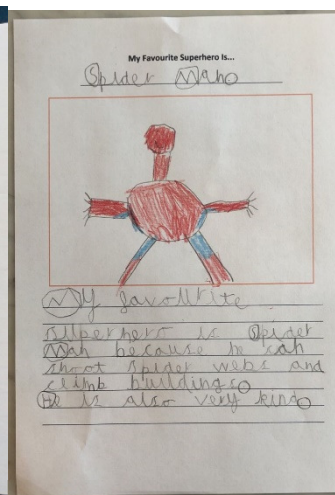 My Favourite Superhero Is...
Spider Man.
My favourite
superhero is Spider
Man because he can
shoot spider webs and
climb buildings.
He is also very kind.